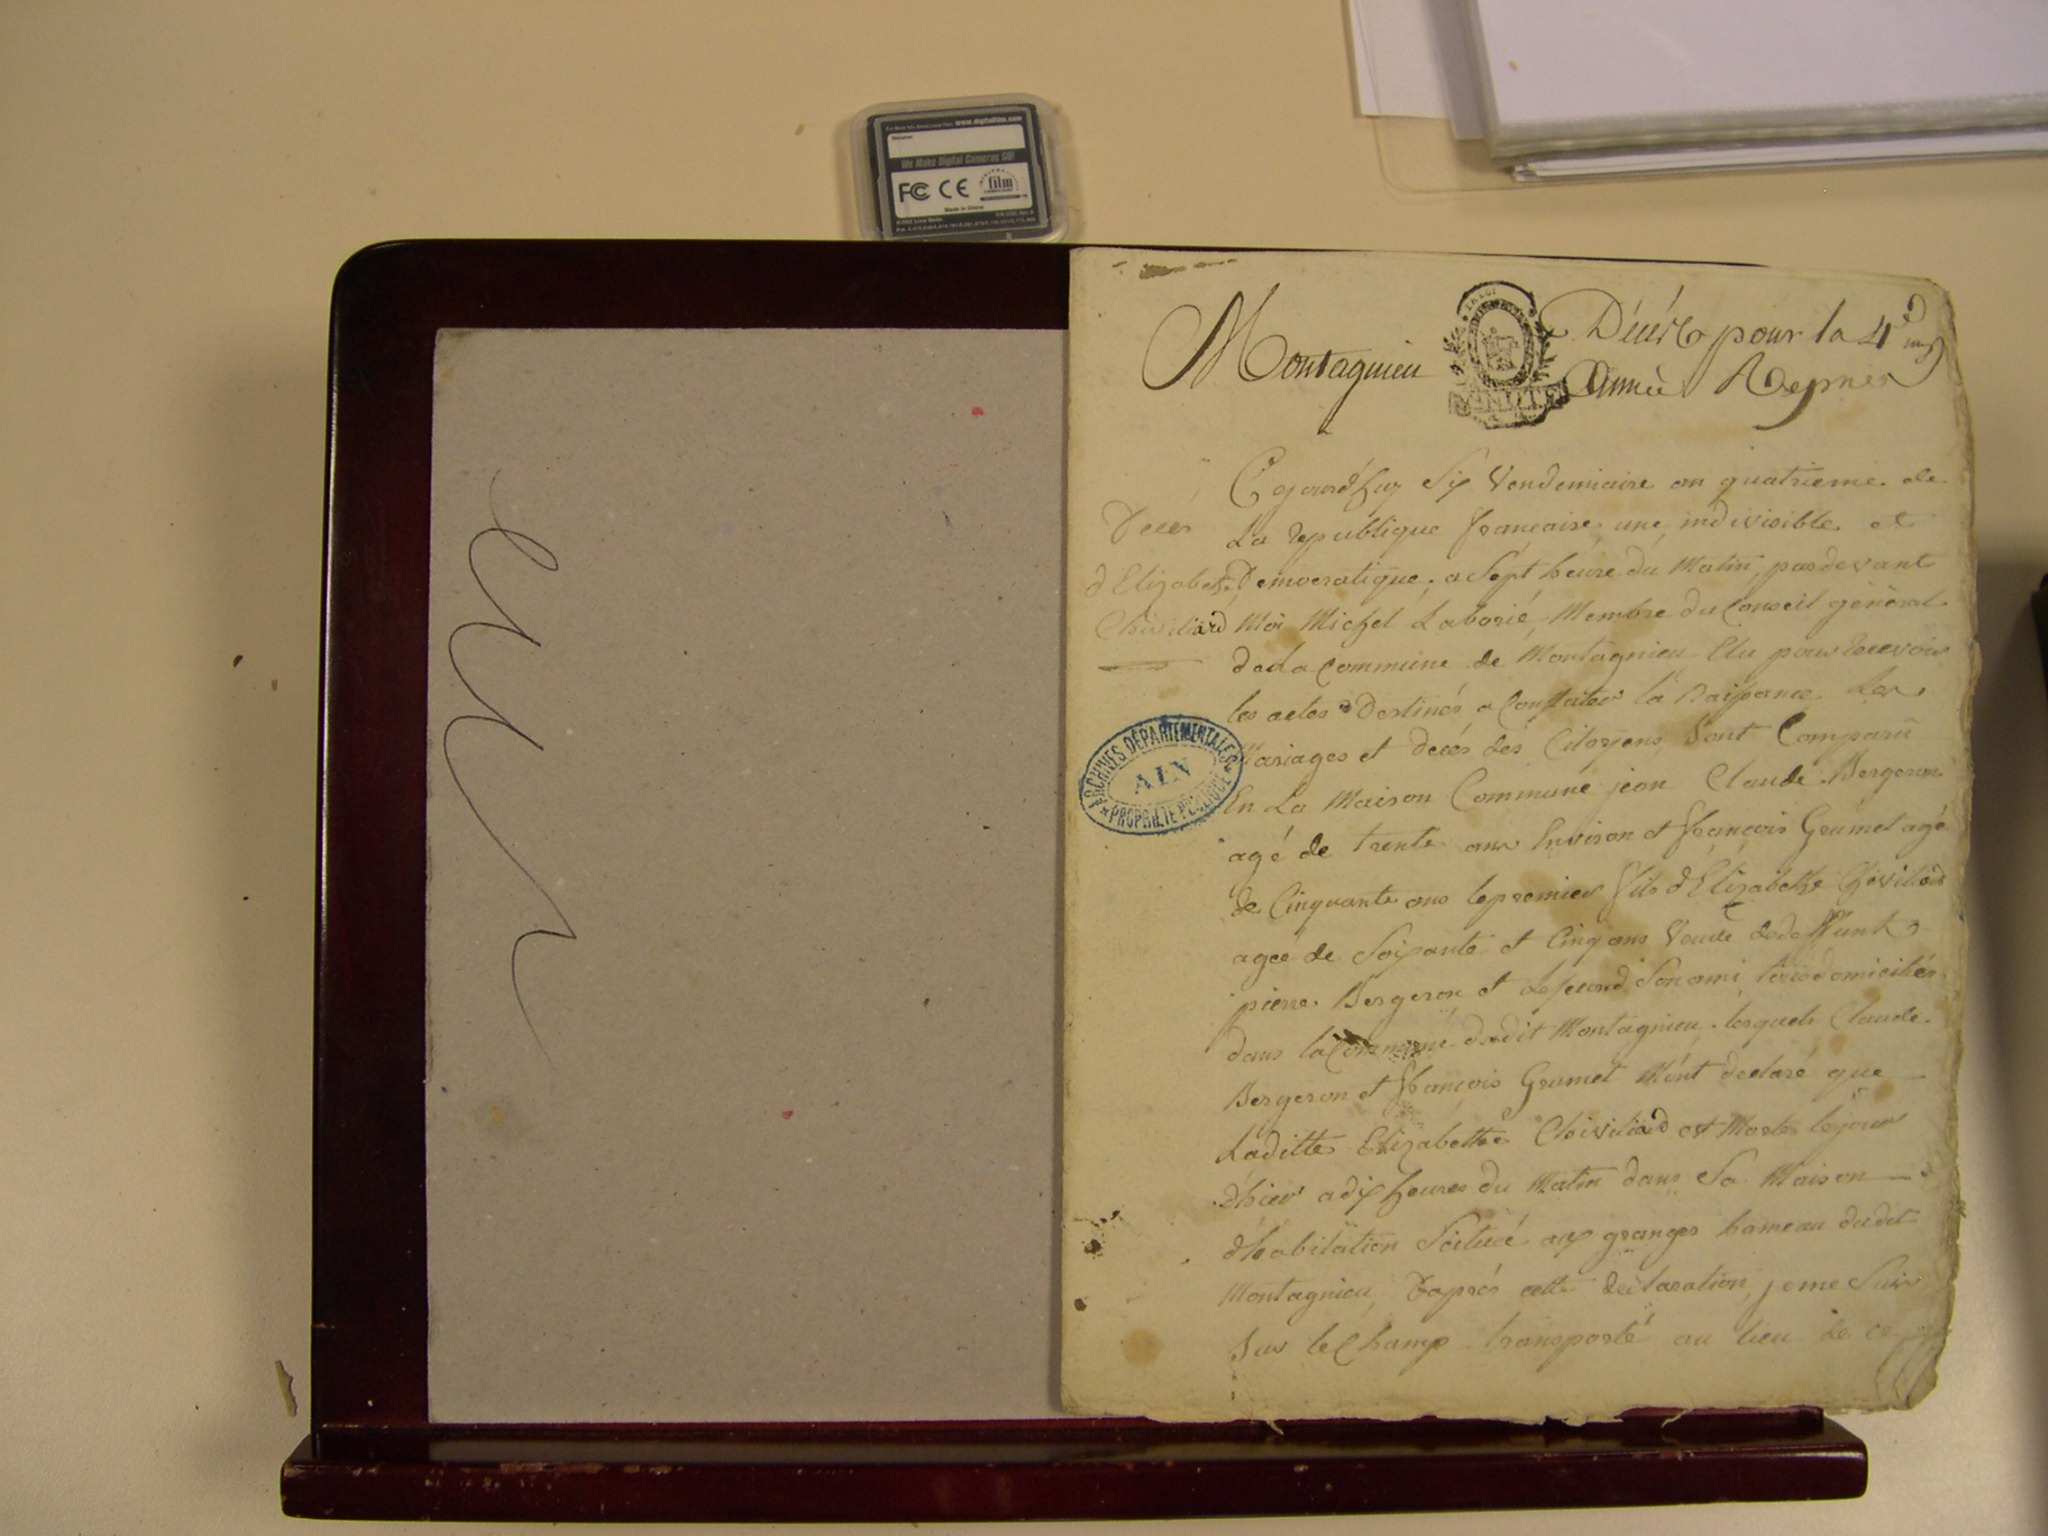 www.digitalfilm.com
We Make Digital Cameras GO!
FC CE film
Made in China
Montagnieu
LA LOI
Décès pour la 4e
Année
Cejourd'huy Six Vendemiaire an quatrieme de
La republique francaise, une, indivisible et
Democratique, a Sept heure du Matin, pardevant
Moi Michel Laborié, Membre du Conseil général
de La Commune de Montagnieu Elu pour recevoir
les actes Destinés a Constater la Naissance. Les
Mariages et décés des Citoyens, Sont Comparû
En La Maison Commune jean Claude Bergeron
agé de trente ans Environ et françois Grumet agé
de Cinquante ans le premier fils d'Elizabethe Chiviliard
agée de Soixante et Cinq ans Veuve de deffunt
pierre Bergeron, et Le second Son ami, domiciliés
dans la Commune dudit Montagnieu, lesquels Claude
Bergeron et françois Grumet M'ont declaré que
Laditte Elizabethe Chiviliard est Morte le jour
d'hier a dix heures du Matin dans Sa Maison
d'habitation Scituée aux granges hameau dudit
Montagnieu, D'aprés cette declaration, je me Suis
Sur le Champ transporté au lieu de ce
Decés
d'Elizabethe
Chiviliard
ARCHIVES DÉPARTEMENTALES
AIN
PROPRIÉTÉ PUBLIQUE